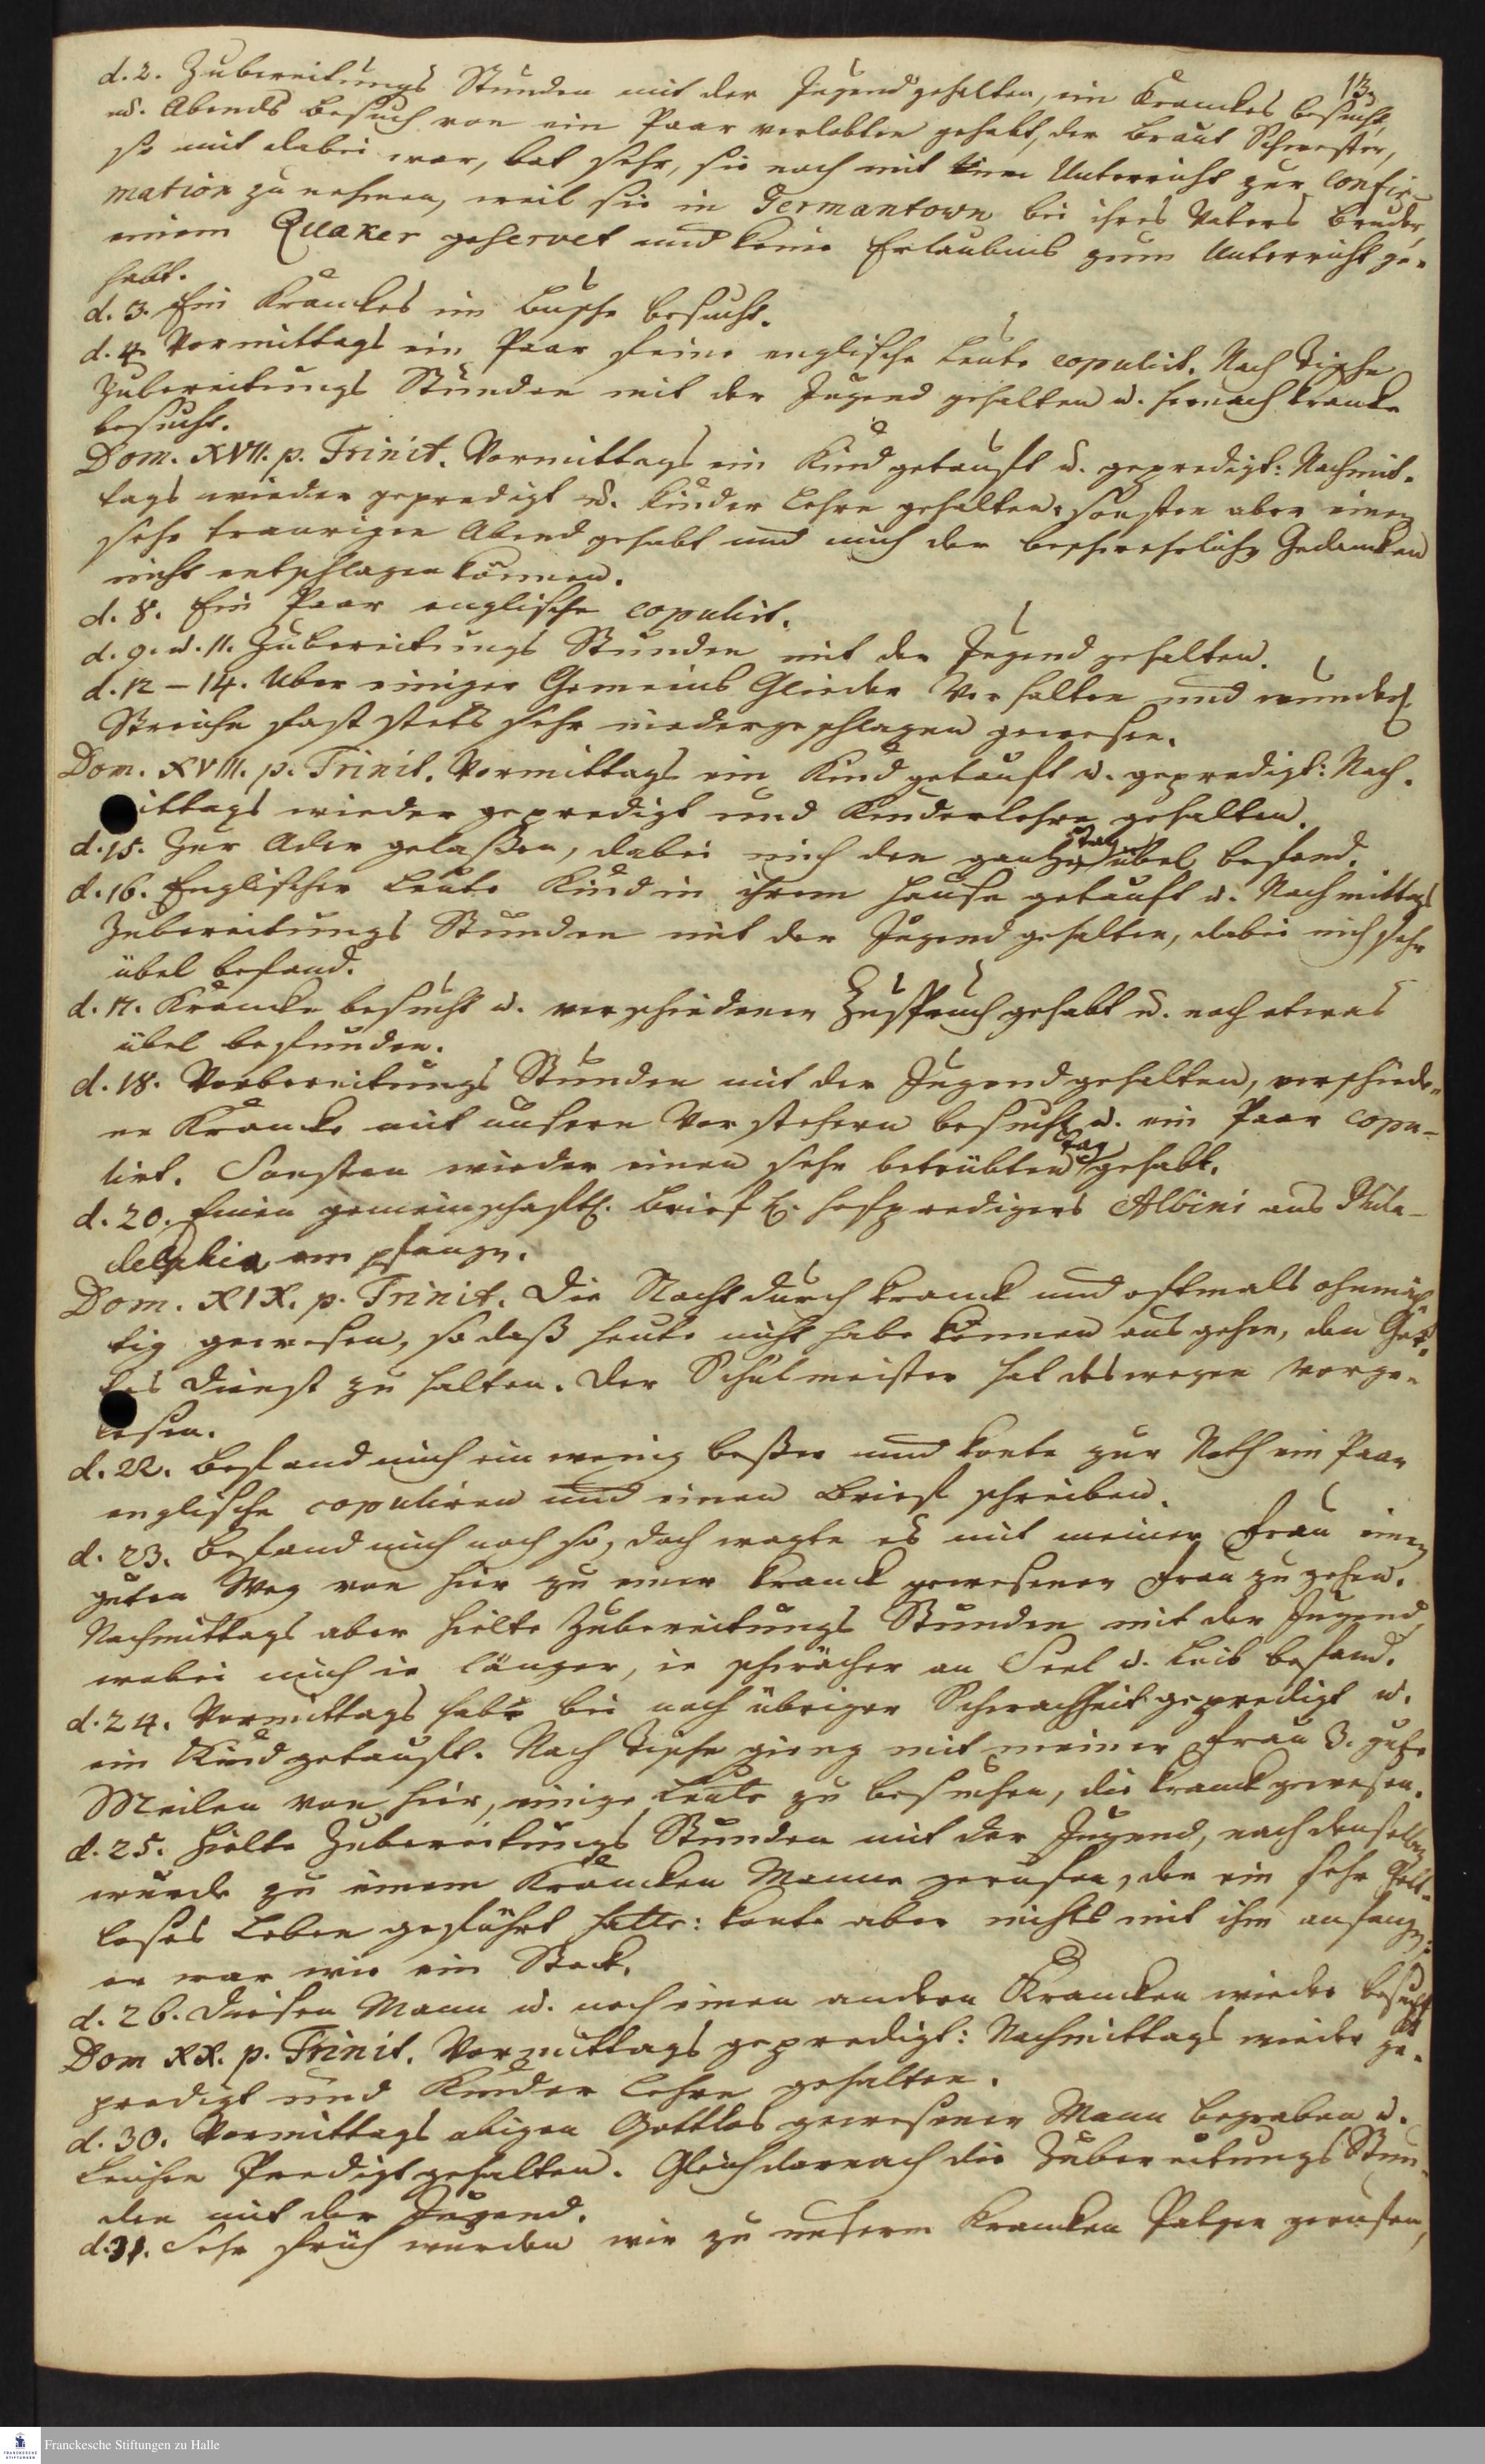 13.
d. 2. Zubereitungs Stunden mit der Jugend gehalten, ein Kranckes besucht,
u. Abends Besuch von ein Paar verlobten gehabt, der Braut Schwester,
so mit dabei war, bat sehr, sie noch mit Unterricht zur Confir-
mation zu nehmen, weil sie in Germantown bei ihres Vaters Bruder,
einem Quaker geservet und keine Erlaubnis zum Unterricht ge-
habt.
d. 3. Ein Kranckes im Busche besucht.
d. 4. Vormittags ein Paar feine englische Leute copulirt. Nach Tische
Zubereitungs Stunden mit der Jugend gehalten u. hernach krancke
besucht.
Dom. XVII. p. Trinit. Vormittags ein Kind getauft u. gepredigt: Nachmit-
tags wieder gepredigt u. Kinder Lehre gehalten: sonsten aber einen
sehr traurigen Abend gehabt und mich der beschwehrlichen Gedancken
nicht entschlagen können.
d. 8. Ein Paar englische copulirt.
d. 9. u. 11. Zubereitungs Stunden mit der Jugend gehalten.
d. 12 – 14. Über einiger Gemeins Glieder Verhalten und wunderl.
Streiche fast stets sehr niedergeschlagen gewesen.
Dom. XVIII. p. Trinit. Vormittags ein Kind getauft u. gepredigt: Nach-
mittags wieder gepredigt und Kinderlehre gehalten.
d. 15. Zur Ader gelaßen, dabei mich den gantzen Tag übel befand.
d. 16. Englischer Leute Kind in ihrem Hause getauft u. Nachmittags
Zubereitungs Stunden mit der Jugend gehalten, dabei mich sehr
übel befand.
d. 17. Krancke besucht u. verschiedenen Zuspruch gehabt u. noch etwas
übel befunden.
d. 18. Vorbereitungs Stunden mit der Jugend gehalten, verschiede-
ne Krancke mit unsern Vorstehern besucht u. ein Paar copu-
lirt. Sonsten wieder einen sehr betrübten Tag gehabt.
d. 20. Einen gemeinschaftl. Brief H. Hofpredigers Albini aus Phila-
delphia empfangen.
Dom. XIX. p. Trinit. Die Nacht durch kranck und oftmals ohnmäch-
tig gewesen, so daß heute nicht habe können ausgehen, den Got-
tes Dienst zu halten. Der Schulmeister hat deswegen vorge-
lesen.
d. 22. Befand mich ein wenig beßer und konte zur Noth ein Paar
englische copuliren und einen Brief schreiben.
d. 23. Befand mich noch so, doch wagte es mit meiner Frau einen
guten Weg von hier zu einer kranck gewesenen Frau zu gehen.
Nachmittags aber hielte Zubereitungs Stunden mit der Jugend,
wobei mich ie länger, ie schwächer an Seel u. Leib befand.
d. 24. Vormittags habe bei noch übriger Schwachheit gepredigt u.
ein Kind getauft. Nach Tische gieng mit meiner Frau 3. gute
Meilen von hier, einige Leute zu besuchen, die kranck gewesen.
d. 25. Hielte Zubereitungs Stunden mit der Jugend, nach denselben
wurde zu einem Krancken Manne gerufen, der ein sehr Gott-
loses Leben geführt hatte: konte aber nichts mit ihm anfangen:
er war wie ein Stock.
d. 26. Diesen Mann u. noch einen andern Krancken wieder besucht
Dom XX. p. Trinit. Vormittags gepredigt: Nachmittags wieder ge-
predigt und Kinder Lehre gehalten.
d. 30. Vormittags obigen Gottlos gewesenen Mann begraben u.
Leichen Predigt gehalten. Gleich darnach die Zubereitungs Stun-
den mit der Jugend.
d. 31. Sehr früh wurden wir zu unserm Krancken gerufen,
Franckesche Stiftungen zu Halle